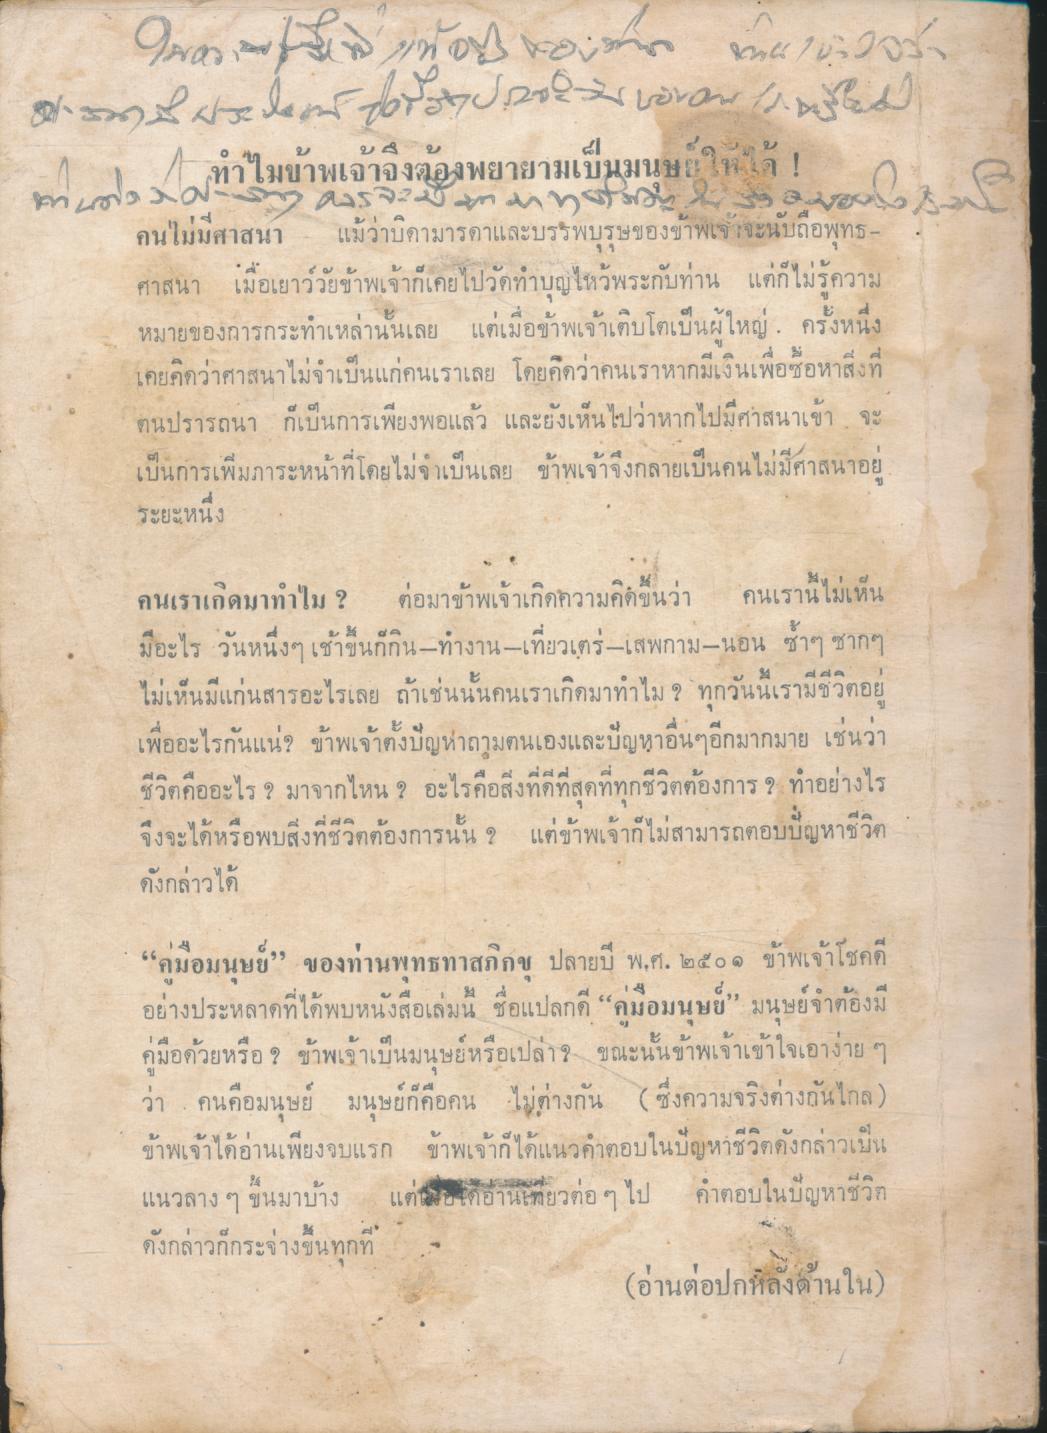 ทำไมข้าพเจ้าจึงต้องพยายามเป็นมนุษย์ให้ได้ !
คนไม่มีศาสนา แม้ว่าบิดามารดาและบรรพบุรุษของข้าพเจ้าจะนับถือพุทธ-
ศาสนา เมื่อเยาว์วัยข้าพเจ้าก็เคยไปวัดทำบุญไหว้พระกับท่าน แต่ก็ไม่รู้ความ
หมายของการกระทำเหล่านั้นเลย แต่เมื่อข้าพเจ้าเติบโตเป็นผู้ใหญ่ ครั้งหนึ่ง
เคยคิดว่าศาสนาไม่จำเป็นแก่คนเราเลย โดยคิดว่าคนเราหากมีเงินเพื่อซื้อหาสิ่งที่
ตนปรารถนา ก็เป็นการเพียงพอแล้ว และยังเห็นไปว่าหากไปมีศาสนาเข้า จะ
เป็นการเพิ่มภาระหน้าที่โดยไม่จำเป็นเลย ข้าพเจ้าจึงกลายเป็นคนไม่มีศาสนาอยู่
ระยะหนึ่ง
คนเราเกิดมาทำไม ? ต่อมาข้าพเจ้าเกิดความคิดขึ้นว่า คนเรานี้ไม่เห็น
มีอะไร วันหนึ่งๆ เช้าขึ้นก็กิน—ทำงาน—เที่ยวเตร่—เสพกาม—นอน ซ้ำๆ ซากๆ
ไม่เห็นมีแก่นสารอะไรเลย ถ้าเช่นนั้นคนเราเกิดมาทำไม ? ทุกวันนี้เรามีชีวิตอยู่
เพื่ออะไรกันแน่? ข้าพเจ้าตั้งปัญหาถามตนเองและปัญหาอื่นๆอีกมากมาย เช่นว่า
ชีวิตคืออะไร ? มาจากไหน ? อะไรคือสิ่งที่ดีที่สุดที่ทุกชีวิตต้องการ ? ทำอย่างไร
จึงจะได้หรือพบสิ่งที่ชีวิตต้องการนั้น ? แต่ข้าพเจ้าก็ไม่สามารถตอบปัญหาชีวิต
ดังกล่าวได้
“คู่มือมนุษย์” ของท่านพุทธทาสภิกขุ ปลายปี พ.ศ. ๒๕๐๑ ข้าพเจ้าโชคดี
อย่างประหลาดที่ได้พบหนังสือเล่มนี้ ชื่อแปลกดี “คู่มือมนุษย์” มนุษย์จำต้องมี
คู่มือด้วยหรือ ? ข้าพเจ้าเป็นมนุษย์หรือเปล่า ? ขณะนั้นข้าพเจ้าเข้าใจเอาง่าย ๆ
ว่า คนคือมนุษย์ มนุษย์ก็คือคน ไม่ต่างกัน (ซึ่งความจริงต่างกันไกล)
ข้าพเจ้าได้อ่านเพียงจบแรก ข้าพเจ้าก็ได้แนวคำตอบในปัญหาชีวิตดังกล่าวเป็น
แนวลาง ๆ ขึ้นมาบ้าง แต่เมื่อได้อ่านเที่ยวต่อ ๆ ไป คำตอบในปัญหาชีวิต
ดังกล่าวก็กระจ่างขึ้นทุกที
(อ่านต่อปกหลังด้านใน)